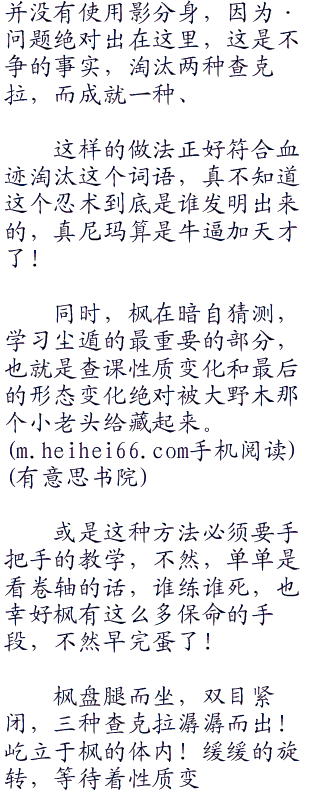 并没有使用影分身，因为·
问题绝对出在这里，这是不
争的事实，淘汰两种查克
拉，而成就一种、
这样的做法正好符合血
迹淘汰这个词语，真不知道
这个忍术到底是谁发明出来
的，真尼玛算是牛逼加天才
了！
同时，枫在暗自猜测，
学习尘遁的最重要的部分，
也就是查课性质变化和最后
的形态变化绝对被大野木那
个小老头给藏起来。
(m.heihei66.com手机阅读)
(有意思书院)
或是这种方法必须要手
把手的教学，不然，单单是
看卷轴的话，谁练谁死，也
幸好枫有这么多保命的手
段，不然早完蛋了！
枫盘腿而坐，双目紧
闭，三种查克拉潺潺而出！
屹立于枫的体内！缓缓的旋
转，等待着性质变